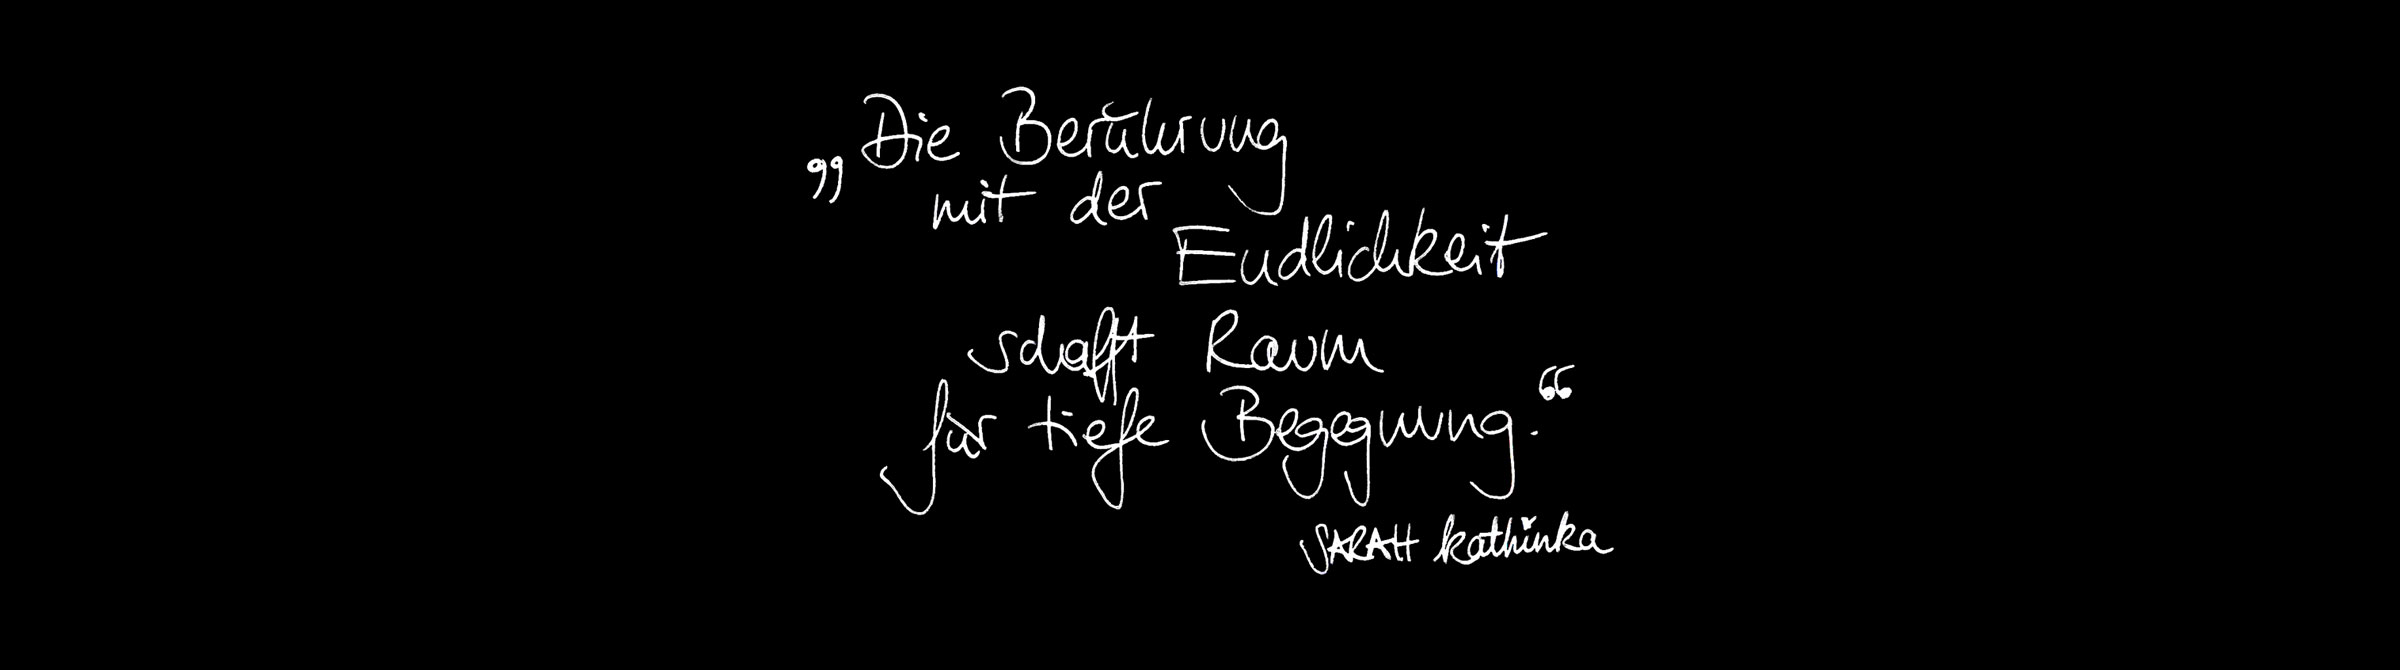 „Die Berührung
mit der
Endlichkeit
schafft Raum
für tiefe Begegnung.“
SARAH kathinka